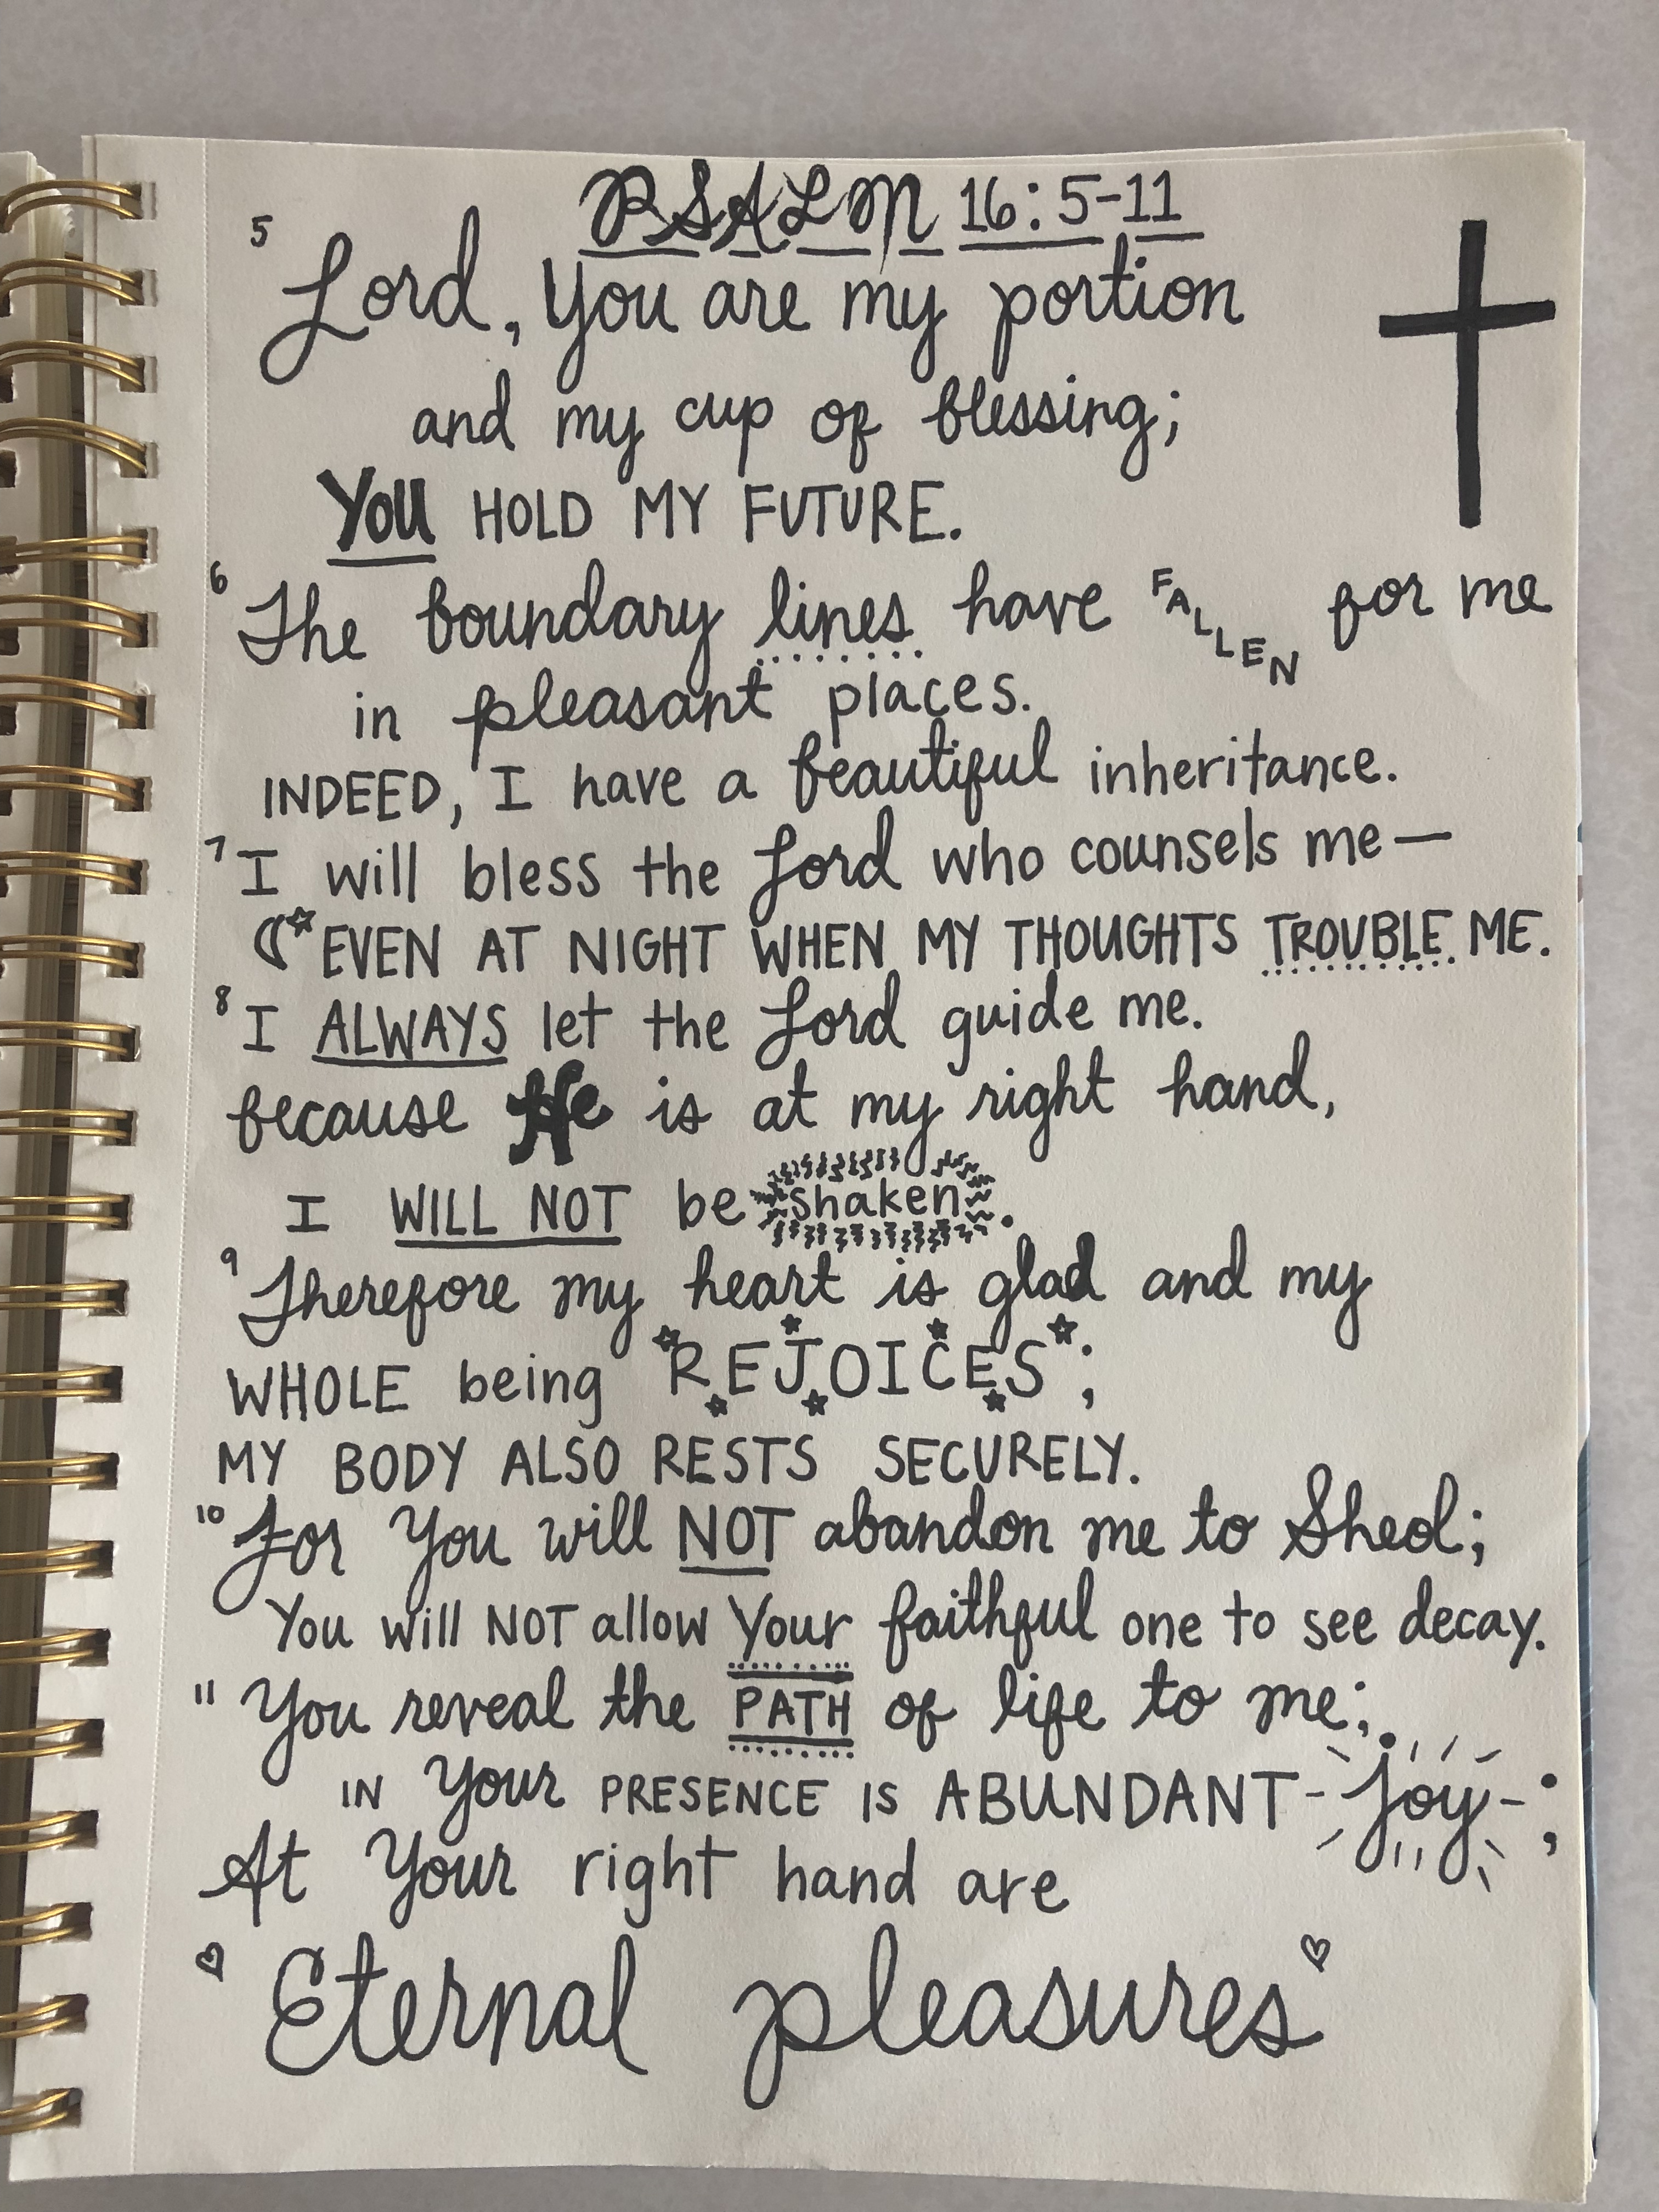 PSALM 16:5-11
5 Lord, You are my portion
and my cup of blessing;
You HOLD MY FUTURE.
6 The boundary lines have FALLEN for me
in pleasant places.
INDEED, I have a beautiful inheritance.
7 I will bless the Lord who counsels me—
EVEN AT NIGHT WHEN MY THOUGHTS TROUBLE ME.
8 I ALWAYS let the Lord guide me.
because He is at my right hand,
I WILL NOT be shaken.
9 Therefore my heart is glad and my
WHOLE being REJOICES;
MY BODY ALSO RESTS SECURELY.
10 For You will NOT abandon me to Sheol;
You will NOT allow Your faithful one to see decay.
11 You reveal the PATH of life to me;
IN Your PRESENCE IS ABUNDANT -Joy-;
At Your right hand are
Eternal pleasures